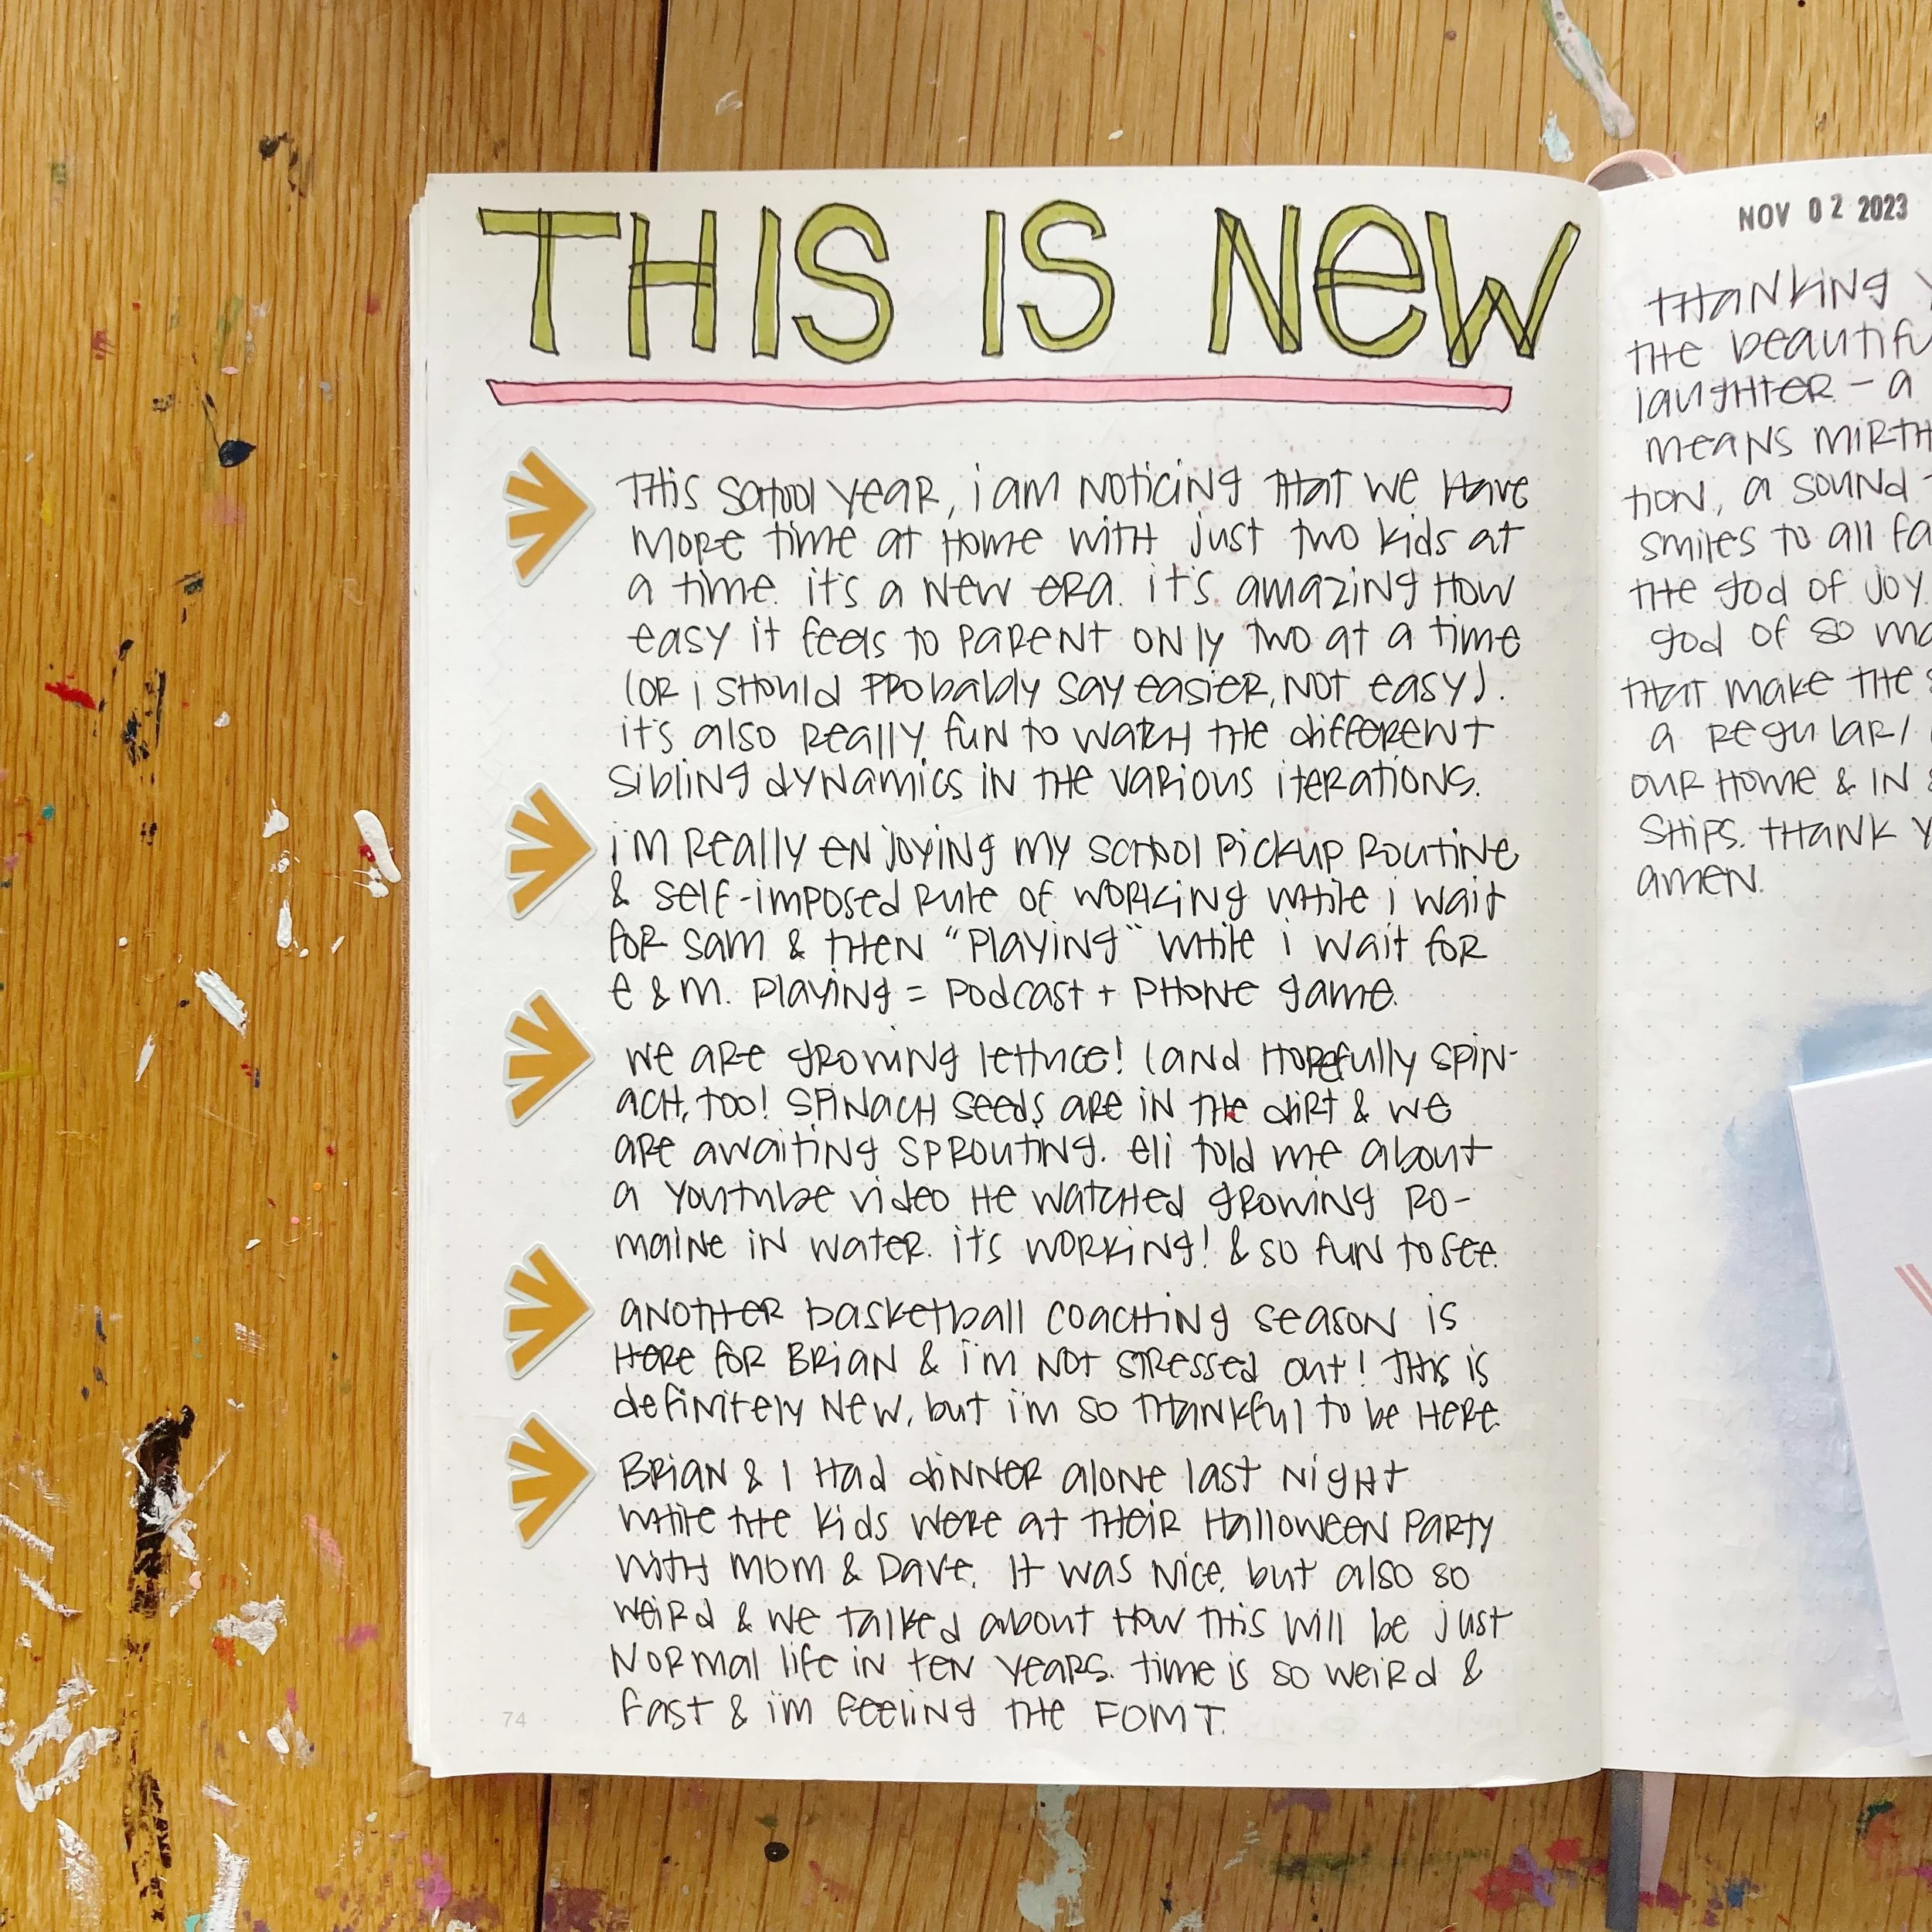 THIS IS NEW
THIS SCHOOL YEAR, i am NOTICING THAT WE HAVE
MORE time at HOME WITH just two kids at
a time. it's a NEW ERA. it's amazing HOW
easy it feels to PARENT ONLY TWO at a time
(OR i SHOULD PROBABLY say easier, NOT easy).
it's also REALLY fun to WATCH THE different
sibling dynamics IN THE VARIOUS iterations.
i'm REALLY ENJOYING my SCHOOL PICKUP ROUTINE
& self-imposed RULE of WORKING WHILE i wait
FOR sam & THEN "Playing" WHILE i wait FOR
e & m. Playing = Podcast + PHONE game.
WE ARE GROWING lettuce! (and HOPEfully SPIN-
ACH, TOO! SPINACH SEEDS ARE IN THE DIRT & WE
ARE awaiting SPROUTING. Eli told me about
a youtube video HE WATCHED GROWING RO-
maine IN WATER. it's WORKING! & so fun to see.
ANOTHER basketball COACHING SEASON is
HERE FOR BRIAN & i'm NOT STRESSED out! THIS is
definitely NEW, but i'm so THANKFUl to be HERE.
BRIAN & I HAD DINNER ALONE last NIGHT
WHILE THE kids WERE at THEIR HALLOWEEN PARTY
WITH MOM & DAVE. It was NICE, but also so
WEIRD & WE TALKED about HOW THIS Will be just
NORMAL life in TEN YEARS. time is so weiRd &
fast & i'm feeling THE FOMT.
74
NOV 02 2023
THANKING
THE beautifu
laughter - a
MEANS MIRTH
TION, a SOUND
smiles to all fa
THE god of joy.
god of so
THAT make THE
a REGULAR/
OUR HOME & IN
SHIPS. THANK Y
amen.